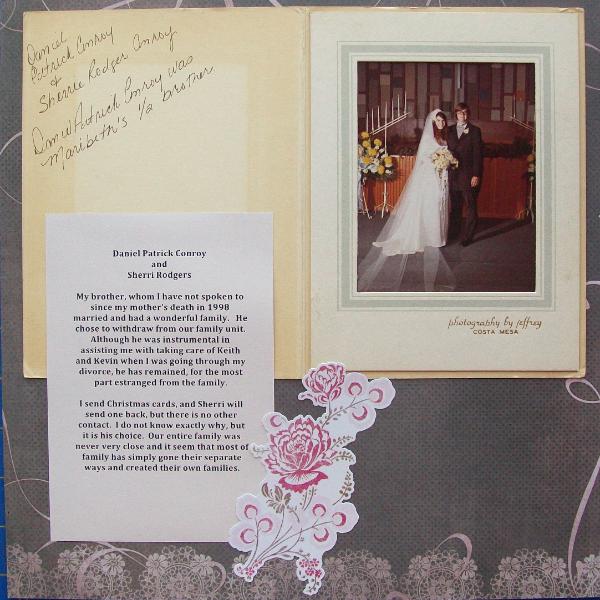 Daniel
Patrick Conroy
&
Sherrie Rodger Conroy
Daniel Patrick Conroy was
Maribeth's 1/2 brother.
photography by jeffrey
COSTA MESA
Daniel Patrick Conroy
and
Sherri Rodgers
My brother, whom I have not spoken to
since my mother's death in 1998
married and had a wonderful family. He
chose to withdraw from our family unit.
Although he was instrumental in
assisting me with taking care of Keith
and Kevin when I was going through my
divorce, he has remained, for the most
part estranged from the family.
I send Christmas cards, and Sherri will
send one back, but there is no other
contact. I do not know exactly why, but
it is his choice. Our entire family was
never very close and it seem that most of
family has simply gone their separate
ways and created their own families.